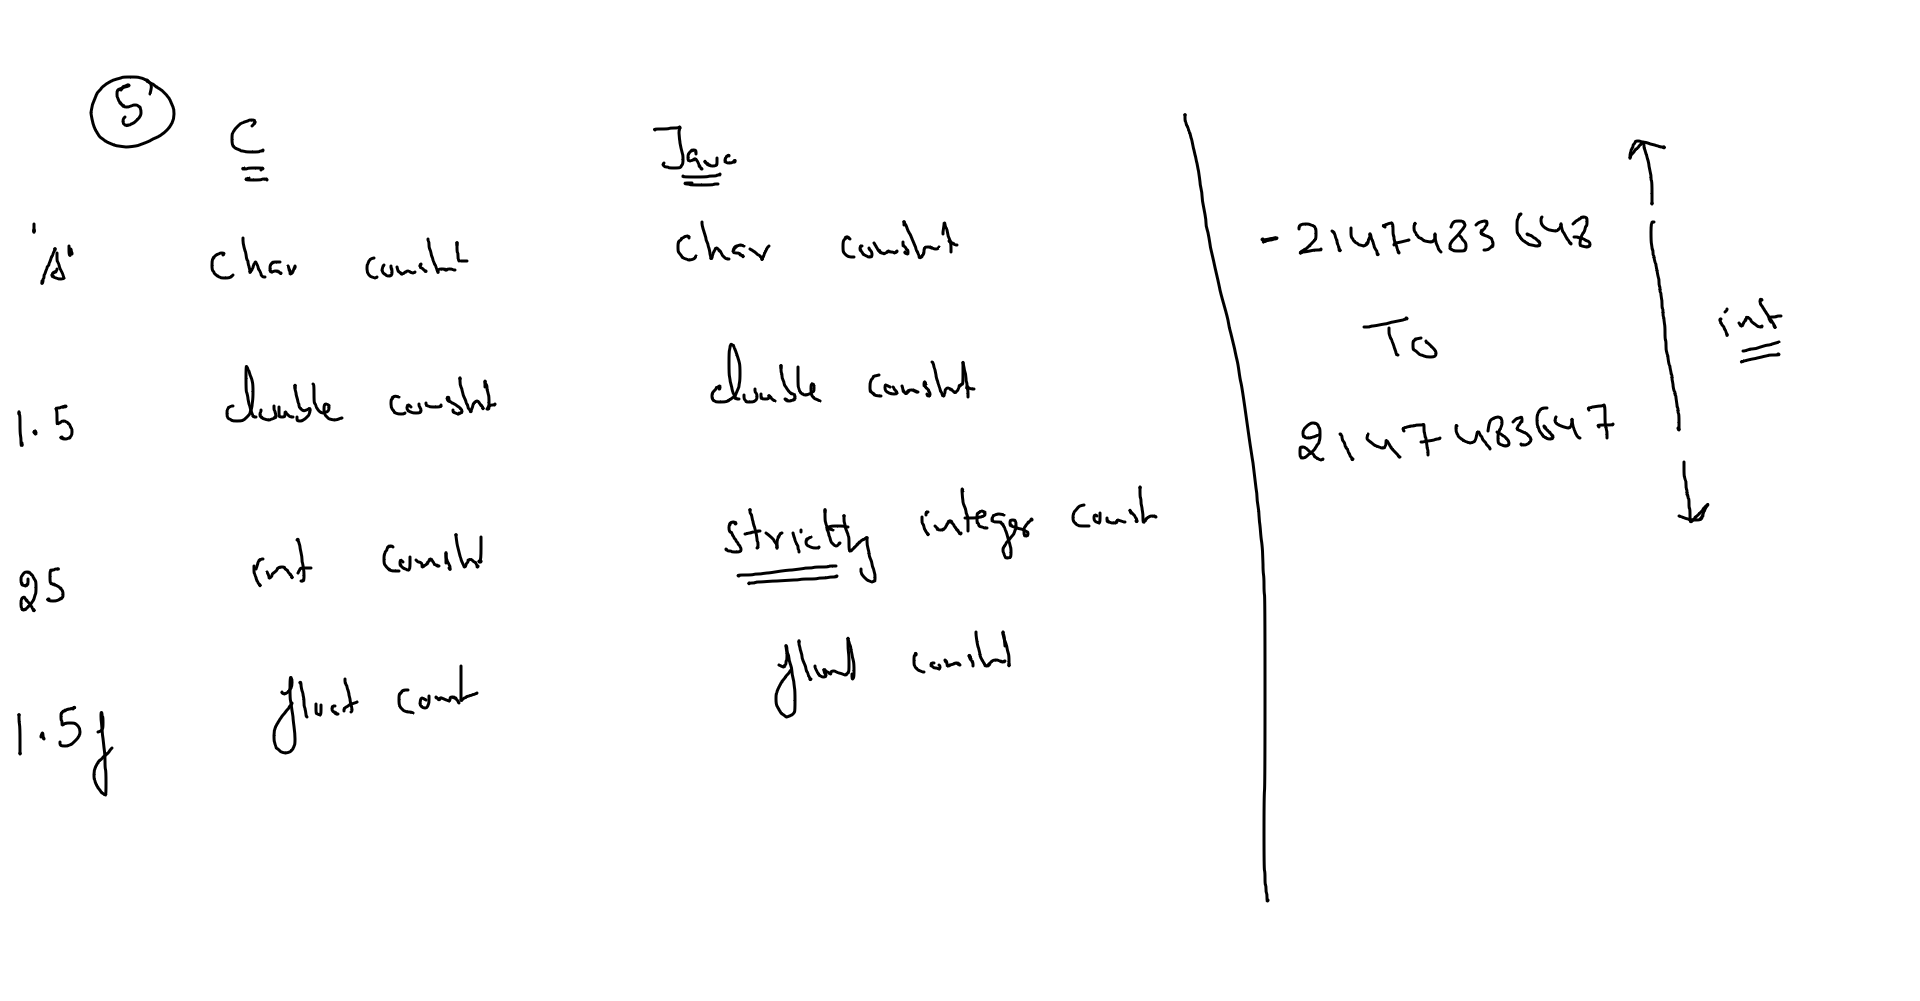 5
C Java
'A' char const char const
1.5 double const double const
25 int const strictly integer const
1.5f float const float const
-2147483648
To
2147483647
int